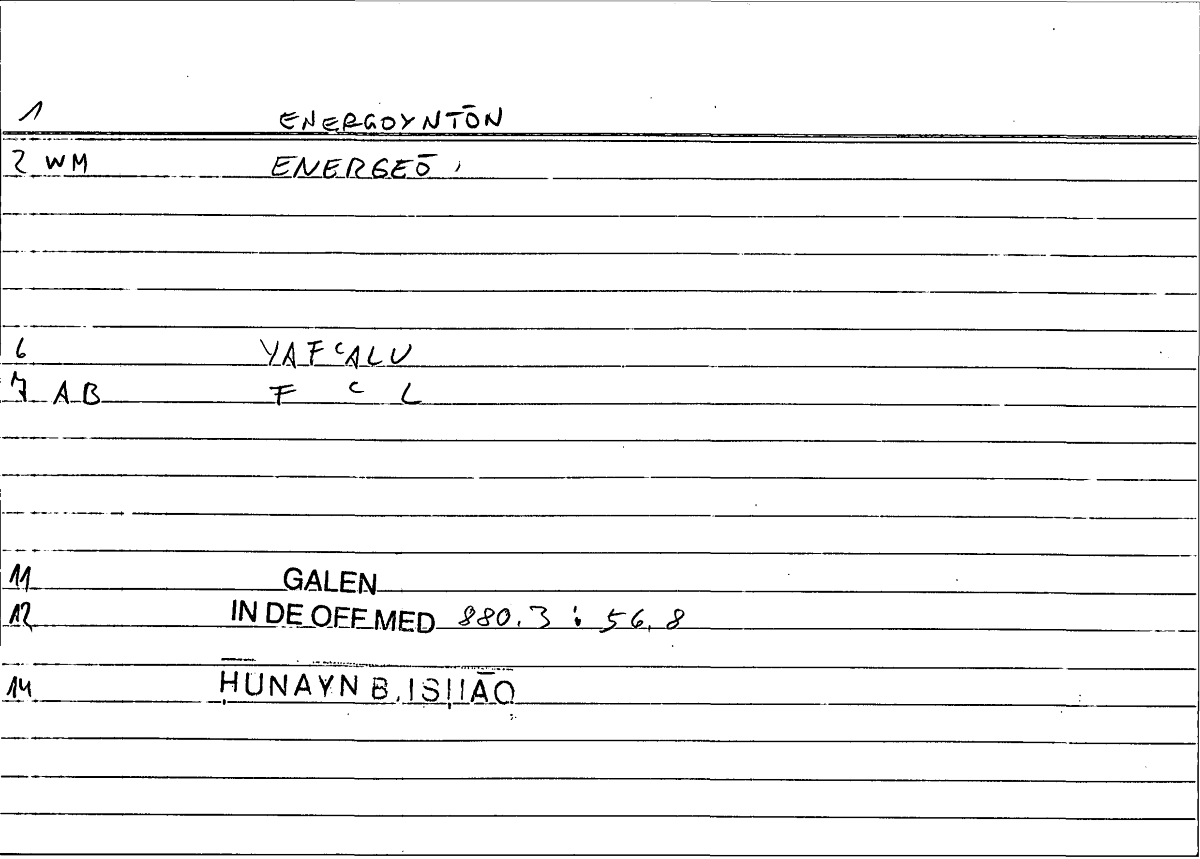 1 ENERGOYNTŌN
2 WM ENERGEŌ
6 YAFᶜALU
7 AB F ᶜ L
11 GALEN
12 IN DE OFF MED 880.3 : 56,8
14 ḤUNAYN B. ISḤĀQ